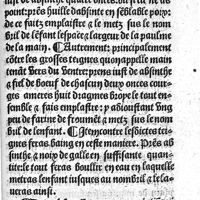 ius de absinthe quatre onces: du fiel
point: prés huille dabsinte en sẽblable poix:
de ce faitz emplaistre & le metz sus le nom
bril de lẽfant lespace & largeur de la paulme
de la main. ¶ Autrement: principalement
cõtre les grosses teignes quon appelle main
tenãt Vers du Ventre: prens ius de absinthe
& fiel de Boeuf de chascun deux onces cour
ges amers huit dragmes broye le tout en
semble & fais emplastre: y adioustant Vng
peu de farine de fromẽt & metz sus le nom
bril de lenfant. ¶ Item cõtre lesdictes tei
gnes feras baing en ceste maniere. Prés ab
sinthe & noix de galle en suffisante quan
tite: le tout feras bouliir en eau en laquelle
metras lenfant iusques au nombril & le la
ueras ainsi.